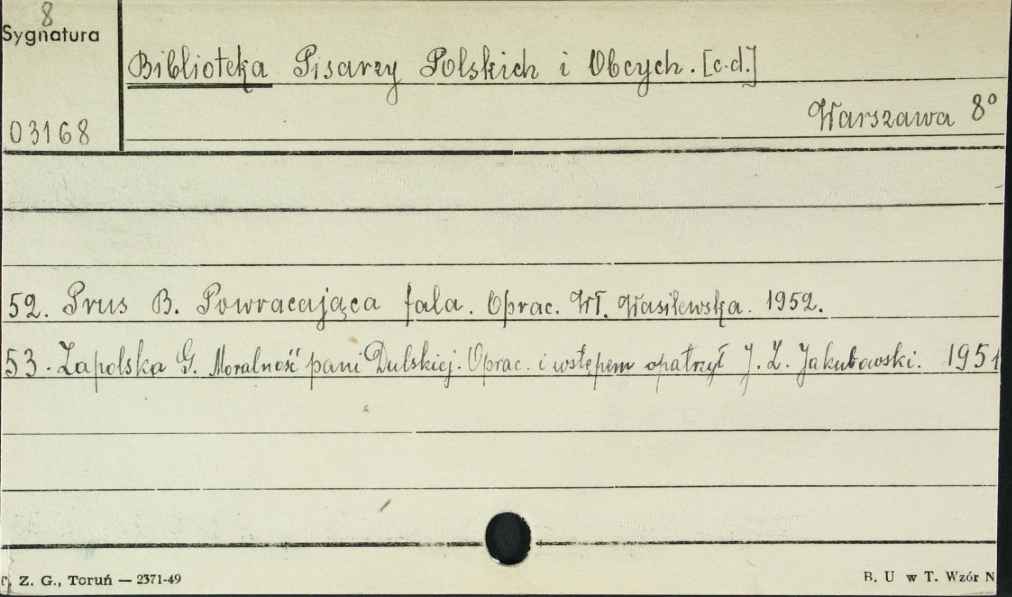 8
Sygnatura
Biblioteka Pisarzy Polskich i Obcych. [c.d.]
03168
Warszawa 8°
52. Prus B. Powracająca fala. Oprac. Wł. Wasilewska. 1952.
53. Zapolska G. Moralność pani Dulskiej. Oprac. i wstępem opatrzył J. Z. Jakubowski. 1951
Z. G., Toruń — 2371-49
B. U w T. Wzór N